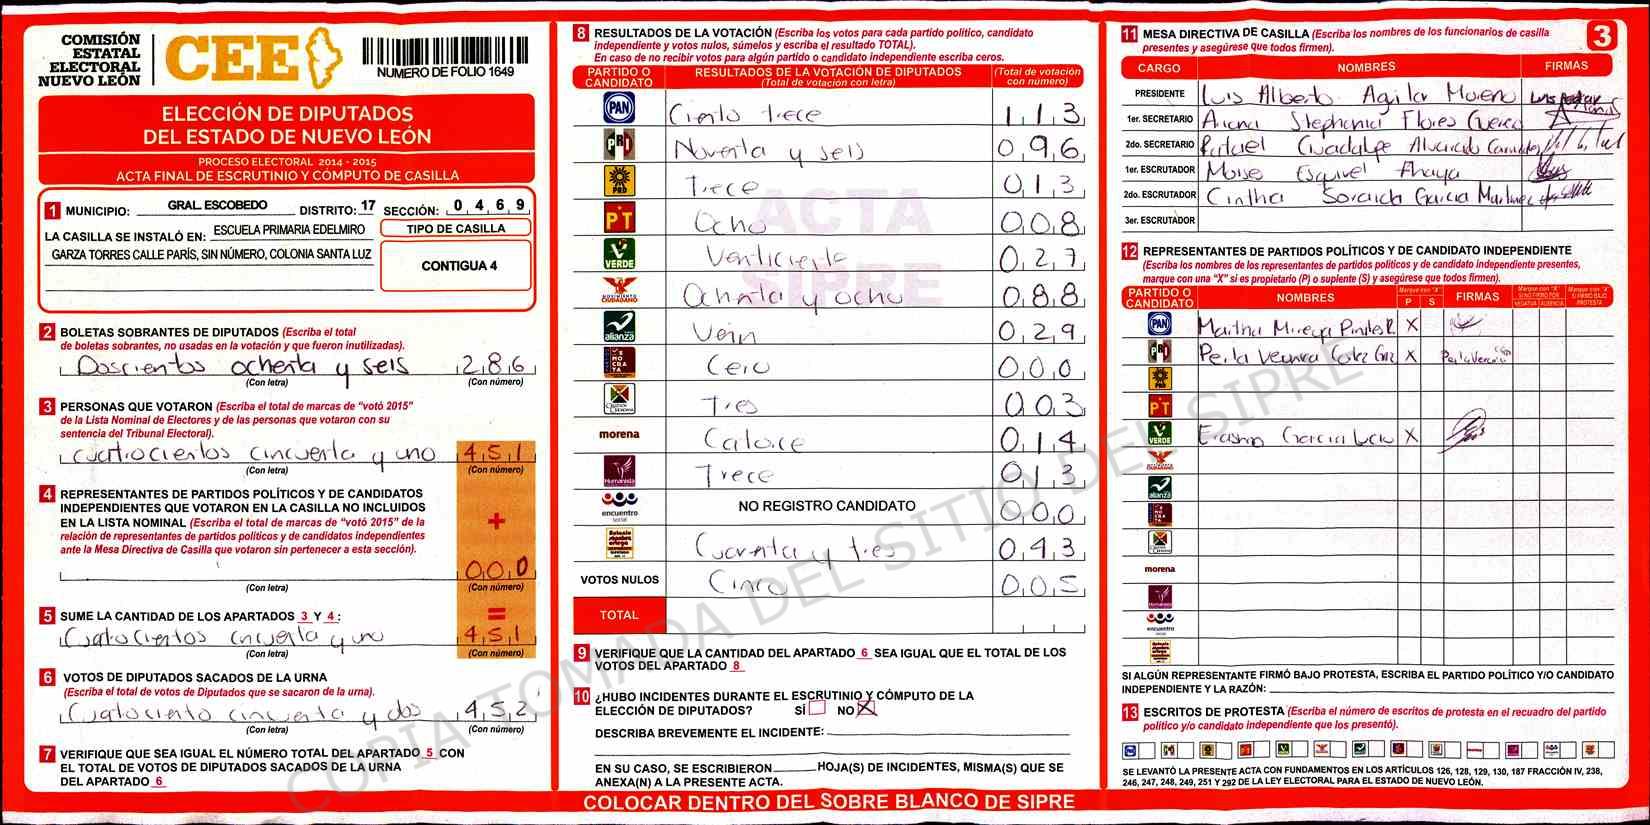 COMISIÓN
ESTATAL
ELECTORAL
NUEVO LEÓN
CEE
NUMERO DE FOLIO 1649
ELECCIÓN DE DIPUTADOS
DEL ESTADO DE NUEVO LEÓN
PROCESO ELECTORAL 2014 - 2015
ACTA FINAL DE ESCRUTINIO Y CÓMPUTO DE CASILLA
1 MUNICIPIO: GRAL. ESCOBEDO DISTRITO: 17 SECCIÓN: 0 4 6 9
LA CASILLA SE INSTALÓ EN: ESCUELA PRIMARIA EDELMIRO
GARZA TORRES CALLE PARÍS, SIN NÚMERO, COLONIA SANTA LUZ
TIPO DE CASILLA
CONTIGUA 4
2 BOLETAS SOBRANTES DE DIPUTADOS (Escriba el total
de boletas sobrantes, no usadas en la votación y que fueron inutilizadas).
Doscientos ochenta y seis 2 8 6
(Con letra) (Con número)
3 PERSONAS QUE VOTARON (Escriba el total de marcas de "votó 2015"
de la Lista Nominal de Electores y de las personas que votaron con su
sentencia del Tribunal Electoral).
cuatrocientos cincuenta y uno 4 5 1
(Con letra) (Con número)
4 REPRESENTANTES DE PARTIDOS POLÍTICOS Y DE CANDIDATOS
INDEPENDIENTES QUE VOTARON EN LA CASILLA NO INCLUIDOS
EN LA LISTA NOMINAL (Escriba el total de marcas de "votó 2015" de la
relación de representantes de partidos políticos y de candidatos independientes
ante la Mesa Directiva de Casilla que votaron sin pertenecer a esta sección).
+
0 0 0
(Con letra) (Con número)
5 SUME LA CANTIDAD DE LOS APARTADOS 3 Y 4 : =
Cuatocientos cincuenta y uno 4 5 1
(Con letra) (Con número)
6 VOTOS DE DIPUTADOS SACADOS DE LA URNA
(Escriba el total de votos de Diputados que se sacaron de la urna).
Cuatociento cincuenta y dos 4 5 2
(Con letra) (Con número)
7 VERIFIQUE QUE SEA IGUAL EL NÚMERO TOTAL DEL APARTADO 5 CON
EL TOTAL DE VOTOS DE DIPUTADOS SACADOS DE LA URNA
DEL APARTADO 6
8 RESULTADOS DE LA VOTACIÓN (Escriba los votos para cada partido político, candidato
independiente y votos nulos, súmelos y escriba el resultado TOTAL).
En caso de no recibir votos para algún partido o candidato independiente escriba ceros.
PARTIDO O CANDIDATO RESULTADOS DE LA VOTACIÓN DE DIPUTADOS (Total de votación con letra) (Total de votación con número)
PAN Ciento trece 1 1 3
PRI Noventa y seis 0 9 6
PRD Trece 0 1 3
PT Ocho 0 0 8
VERDE 0 2 7
MOVIMIENTO CIUDADANO Ochenta y ocho 0 8 8
alianza 0 2 9
DEMOCRATA Cero 0 0 0
Tres 0 0 3
morena Catorce 0 1 4
Humanista Trece 0 1 3
encuentro social NO REGISTRO CANDIDATO 0 0 0
Cuarenta y tres 0 4 3
VOTOS NULOS Cinco 0 0 5
TOTAL
ACTA
SIPRE
9 VERIFIQUE QUE LA CANTIDAD DEL APARTADO 6 SEA IGUAL QUE EL TOTAL DE LOS
VOTOS DEL APARTADO 8
10 ¿HUBO INCIDENTES DURANTE EL ESCRUTINIO Y CÓMPUTO DE LA
ELECCIÓN DE DIPUTADOS? SÍ NO X
DESCRIBA BREVEMENTE EL INCIDENTE:
EN SU CASO, SE ESCRIBIERON HOJA(S) DE INCIDENTES, MISMA(S) QUE SE
ANEXA(N) A LA PRESENTE ACTA.
COLOCAR DENTRO DEL SOBRE BLANCO DE SIPRE
11 MESA DIRECTIVA DE CASILLA (Escriba los nombres de los funcionarios de casilla
presentes y asegúrese que todos firmen).
3
CARGO NOMBRES FIRMAS
PRESIDENTE Luis Alberto Aguilar Moreno
1er. SECRETARIO Ariana Stephania Flores
2do. SECRETARIO Rafael Guadalupe Alvarado
1er. ESCRUTADOR Moise Esquivel
2do. ESCRUTADOR Cinthia Garcia Martinez
3er. ESCRUTADOR
12 REPRESENTANTES DE PARTIDOS POLÍTICOS Y DE CANDIDATO INDEPENDIENTE
(Escriba los nombres de los representantes de partidos políticos y de candidato independiente presentes,
marque con una "X" si es propietario (P) o suplente (S) y asegúrese que todos firmen).
PARTIDO O CANDIDATO NOMBRES Marque con "X" P S FIRMAS Marque con "X" SI NO FIRMÓ POR NEGATIVA AUSENCIA Marque con "X" SI FIRMÓ BAJO PROTESTA
PAN Martha Mireya X
PRI Perla X
PRD
PT
VERDE Erasmo Garcia Lucio X
alianza
morena
Humanista
encuentro social
SI ALGÚN REPRESENTANTE FIRMÓ BAJO PROTESTA, ESCRIBA EL PARTIDO POLÍTICO Y/O CANDIDATO
INDEPENDIENTE Y LA RAZÓN:
13 ESCRITOS DE PROTESTA (Escriba el número de escritos de protesta en el recuadro del partido
político y/o candidato independiente que los presentó).
SE LEVANTÓ LA PRESENTE ACTA CON FUNDAMENTOS EN LOS ARTÍCULOS 126, 128, 129, 130, 187 FRACCIÓN IV, 238,
246, 247, 248, 249, 251 Y 292 DE LA LEY ELECTORAL PARA EL ESTADO DE NUEVO LEÓN.
COPIA TOMADA DEL SITIO DEL SIPRE